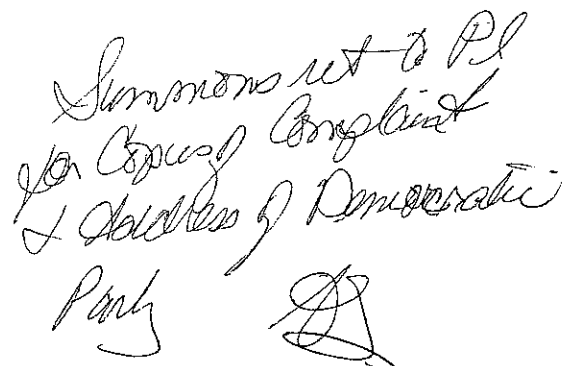 Summons ret to Pl
for Copies of Complaint
& Address of Democratic
Party